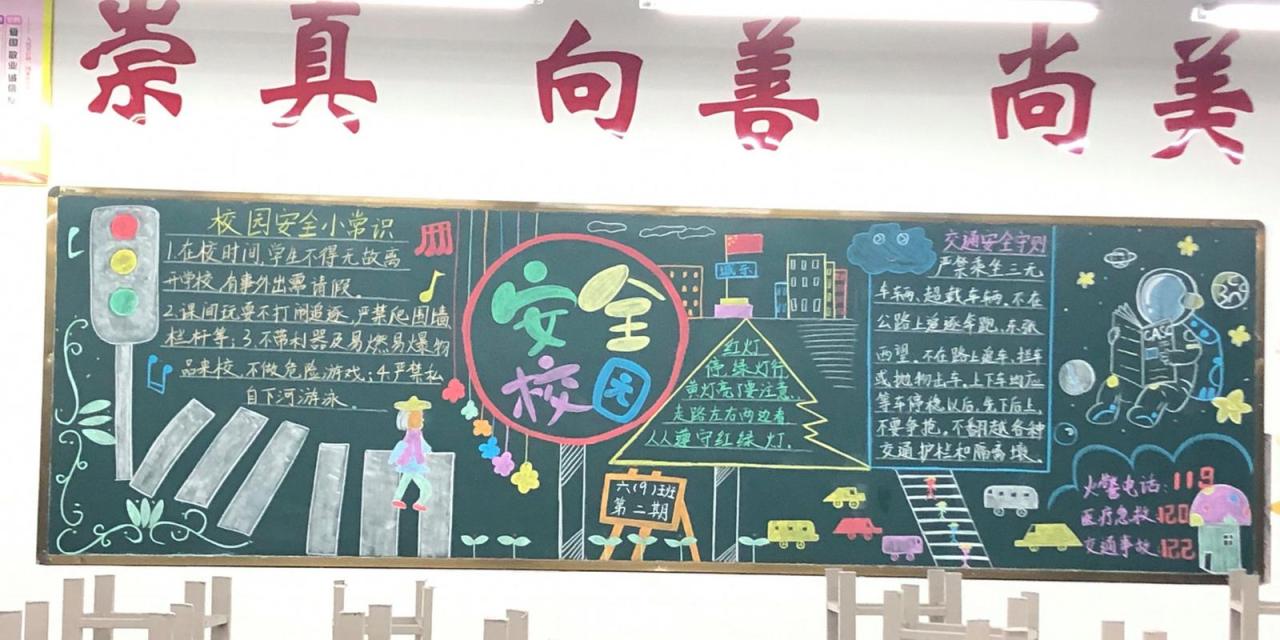 崇真 向善 尚美
爱国 敬业 诚信
校园安全小常识
1.在校时间,学生不得无故离
开学校,有事外出需请假。
2.课间玩耍不打闹追逐,严禁爬围墙
栏杆等;3.不带利器及易燃易爆物
品来校,不做危险游戏;4.严禁私
自下河游泳。
安全
校园
城东
红灯
停 绿灯行
黄灯亮了要注意.
走路左右两边看
人人遵守红绿灯.
六(9)班
第二期
交通安全守则
严禁乘坐三无
车辆、超载车辆,不在
公路上追逐奔跑、东张
西望,不在路上追车、拦车
或抛物击车,上下车均应
等车停稳以后,先下后上,
不要争抢,不翻越各种
交通护栏和隔离墩.
CASC
火警电话:119
医疗急救120
交通事故122